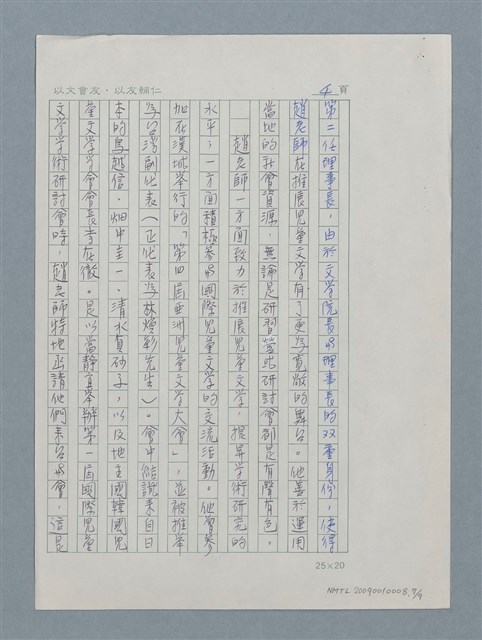 以文會友・以友輔仁
4頁
第二任理事長，由於文學院長與理事長的双重身份，使得
趙老師在推展兒童文學有了更為寬敞的舞台。他善於運用
當地的社會資源，無論是研習營或研討會都是有聲有色。
趙老師一方面致力於推展兒童文學，提昇學術研究的
水平；一方面積極參與國際兒童文學的交流活動。他曾參
加在漢城舉行的「第四屆亞洲兒童文學大會」，並被推舉
為台灣副代表（正代表為林煥彰先生）。會中結識來自日
本的鳥越信．畑中圭一．清水真砂子，以及地主國韓國兒
童文學學會會長李在徹。是以當靜宜舉辦第一屆國際兒童
文學學術研討會時，趙老師特地函請他們來台與會，這是
25×20
NMTL 20090010008.